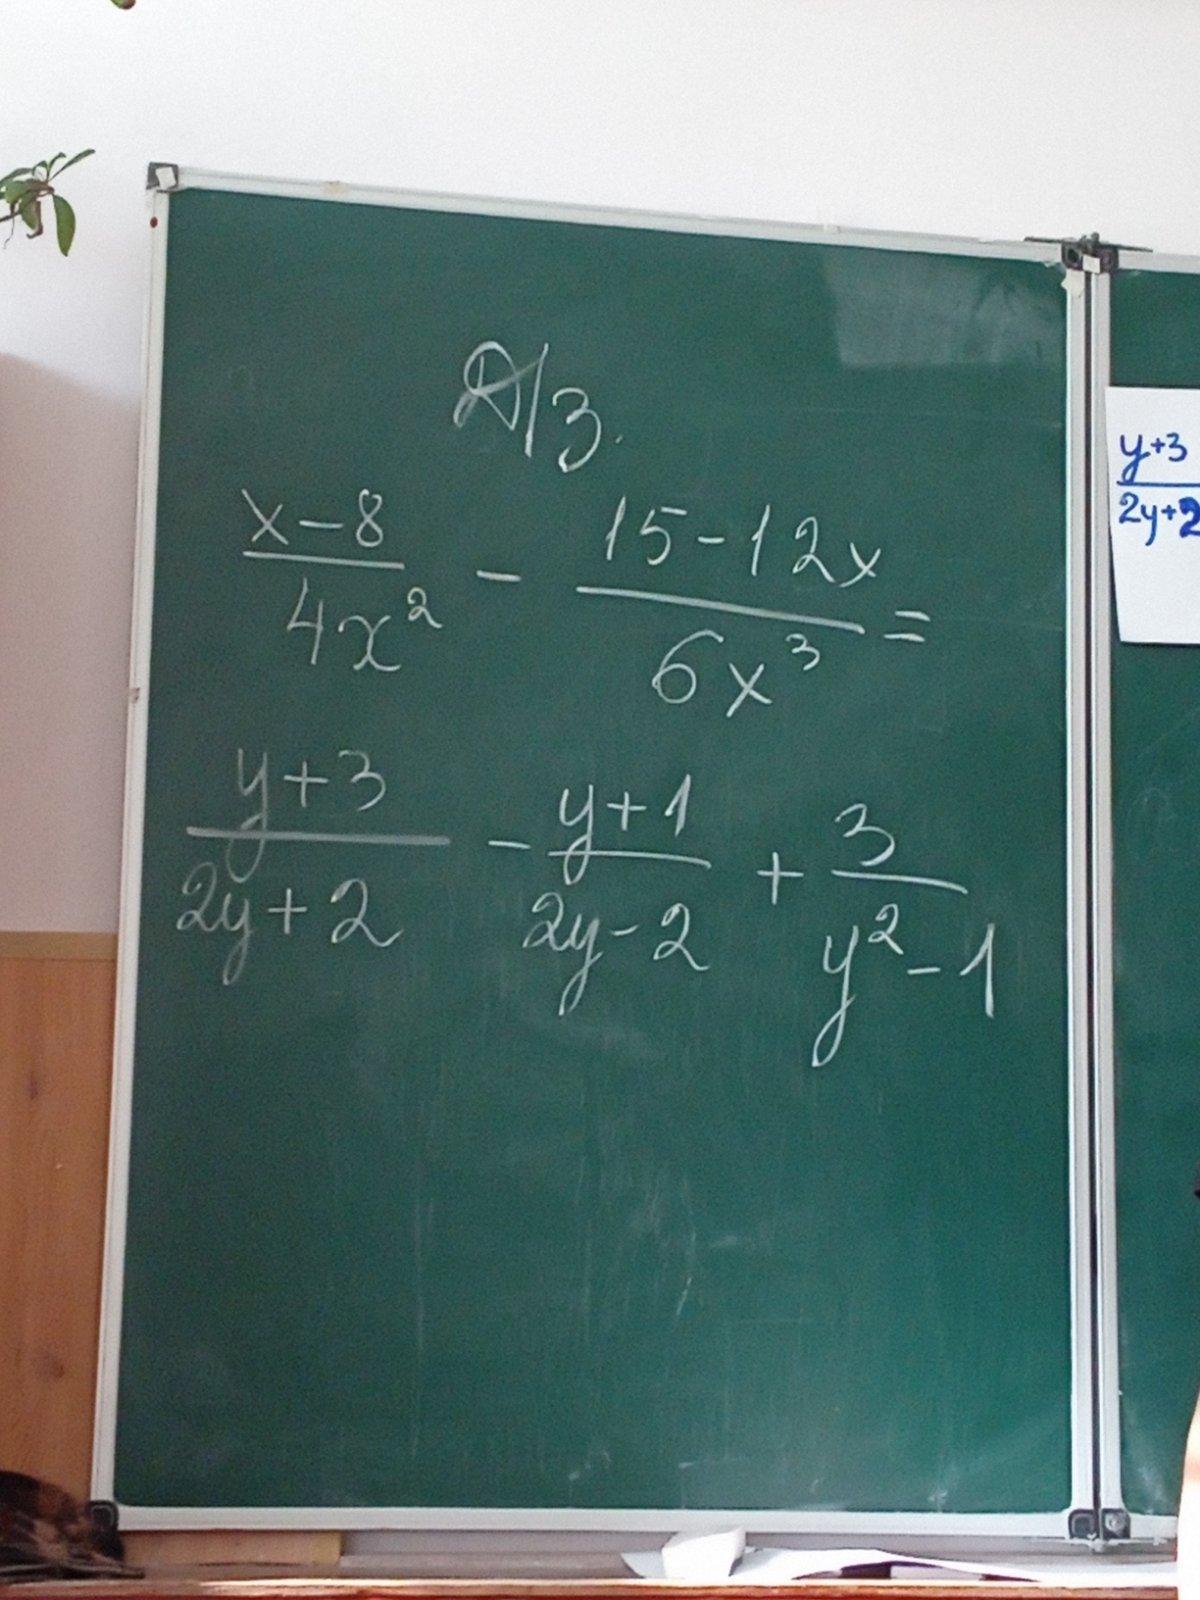 Д/з.
x-8/4x² - 15-12x/6x³ =
y+3/2y+2 - y+1/2y-2 + 3/y²-1
y+3/2y+2